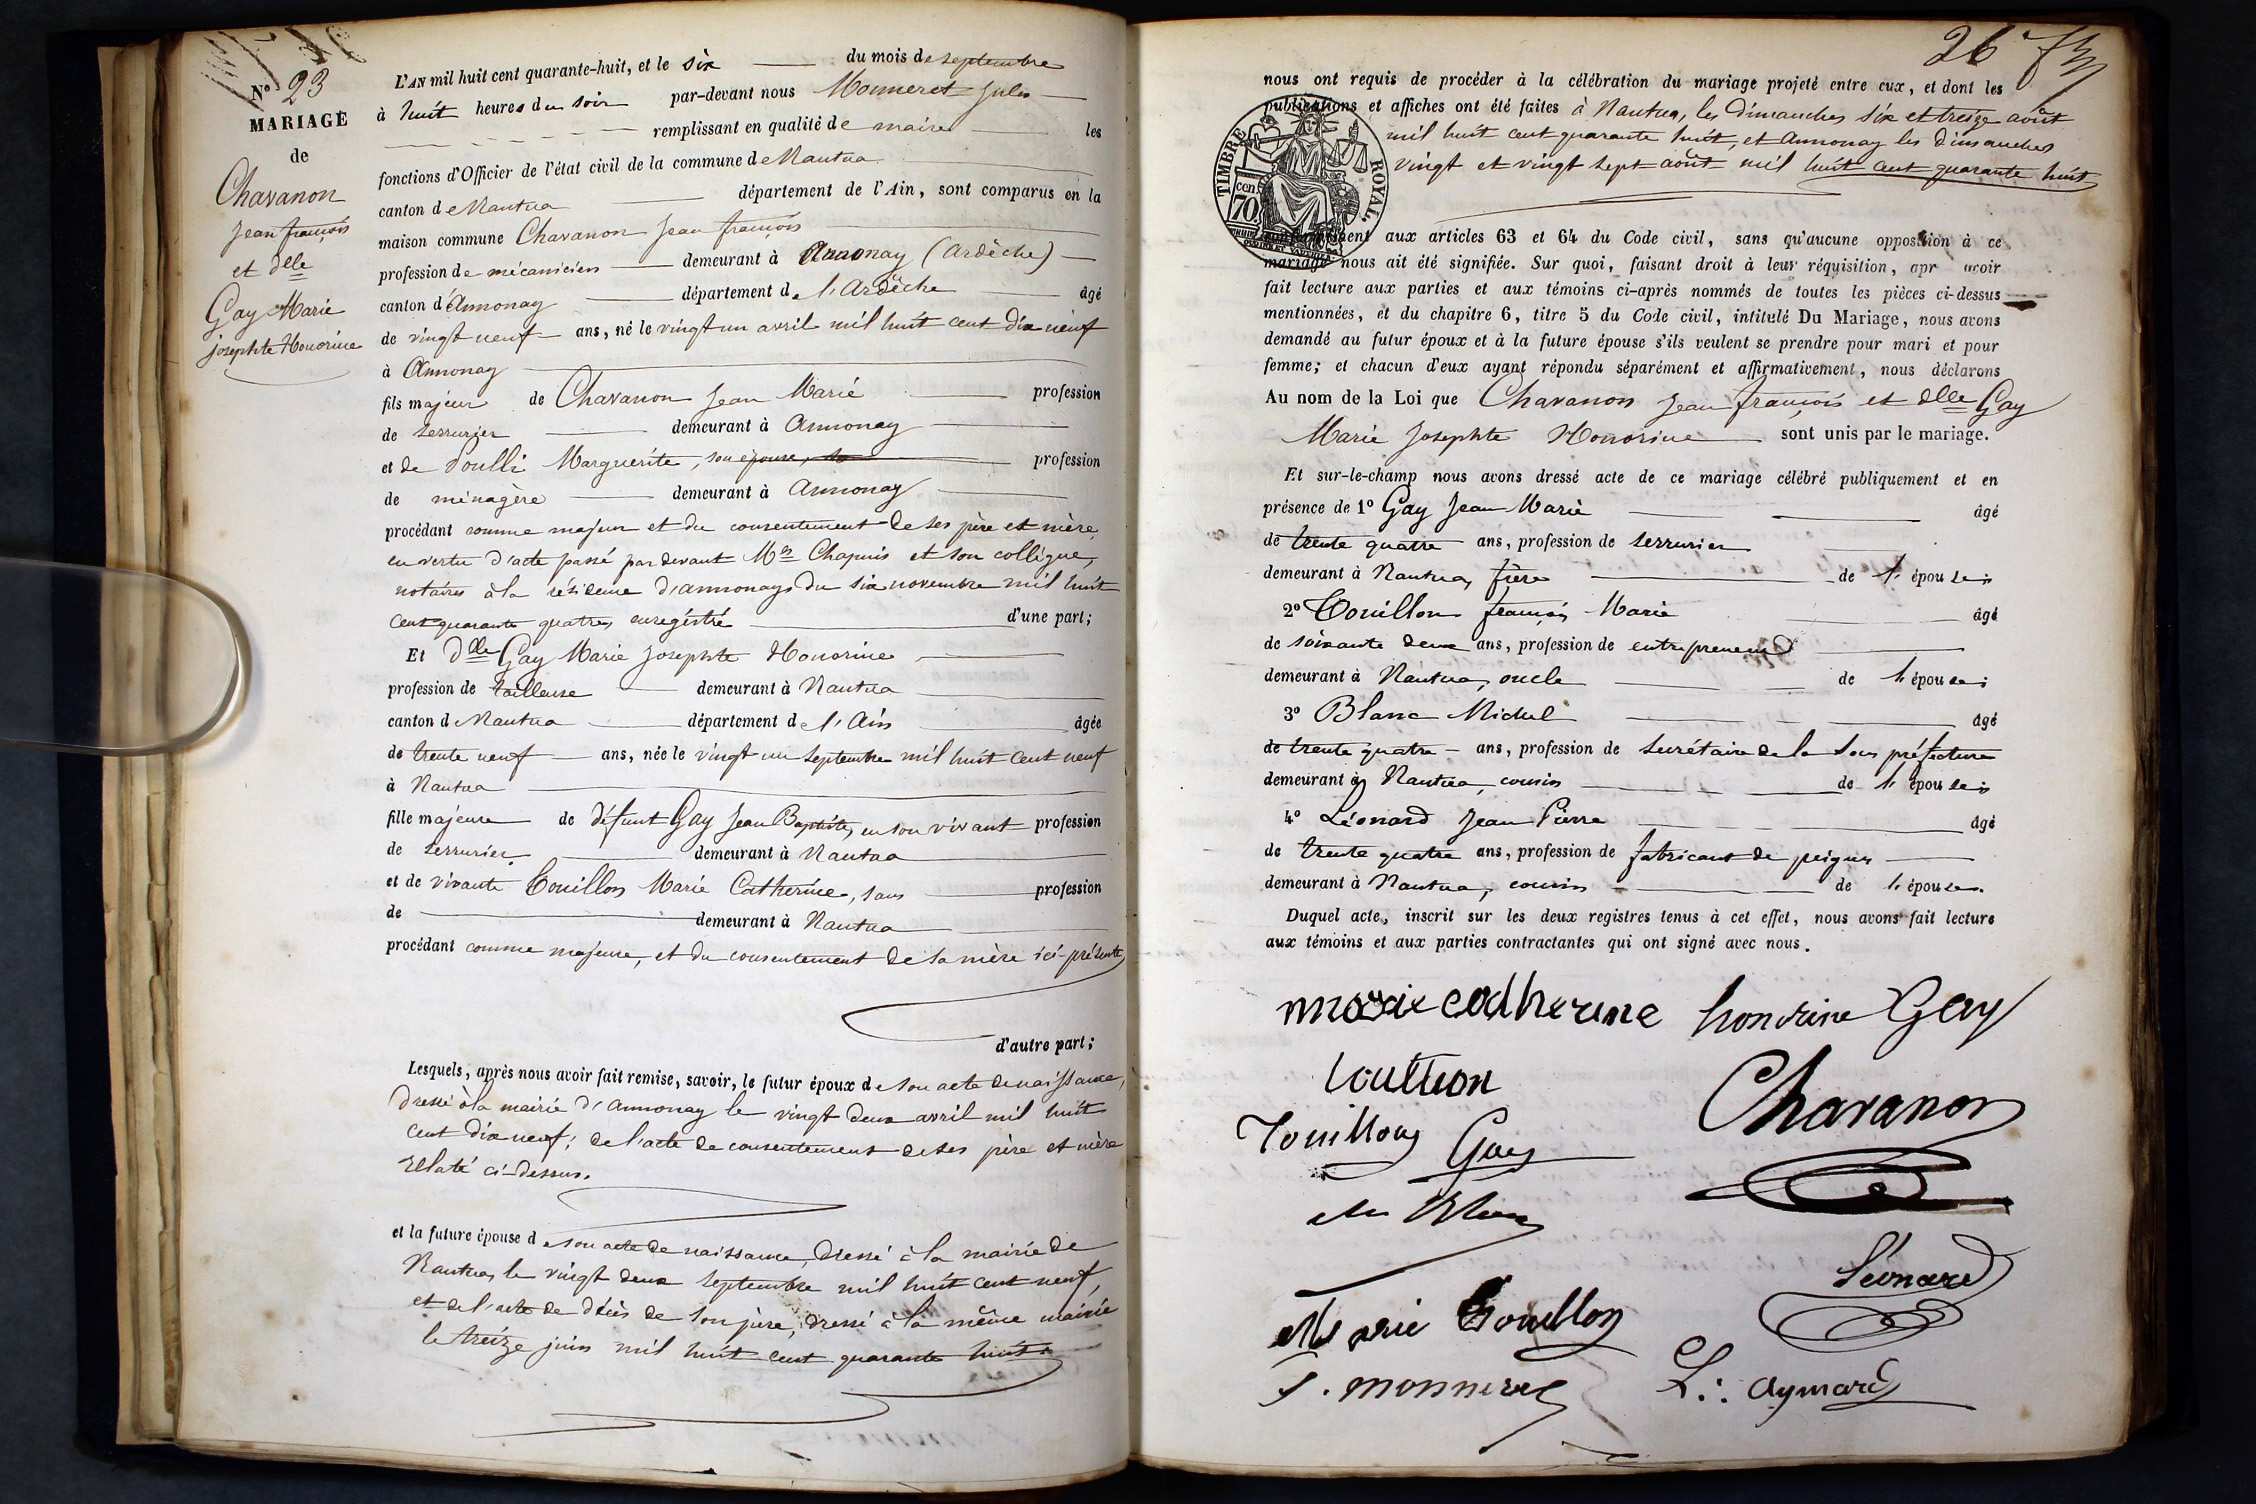 N.o 23
MARIAGE
de
Chavanon
Jean françois
et dlle
Gay Marie
josephte Honorine
L'AN mil huit cent quarante-huit, et le six du mois de septembre
à huit heures du soir par-devant nous Monneret Jules
remplissant en qualité de maire les
fonctions d'Officier de l'état civil de la commune de Nantua
canton de Nantua département de l'Ain, sont comparus en la
maison commune Chavanon Jean françois
profession de mécanicien demeurant à Annonay (Ardèche)
canton d'Annonay département de l'Ardèche âgé
de vingt neuf ans, né le vingt un avril mil huit cent dix neuf
à Annonay
fils majeur de Chavanon Jean Marie profession
de serrurier demeurant à Annonay
et de Voulli Marguerite, son épouse, profession
de ménagère demeurant à Annonay
procédant comme majeur et du consentement de ses père et mère,
en vertu d'acte passé par devant Mes Chapuis et son collègue,
notaires à la résidence d'annonay du six novembre mil huit
cent quarante quatre, enregistré d'une part;
Et Dlle Gay Marie Josephte Honorine
profession de tailleuse demeurant à Nantua
canton de Nantua département de l'Ain âgée
de trente neuf ans, née le vingt un septembre mil huit cent neuf
à Nantua
fille majeure de défunt Gay Jean Baptiste, en son vivant profession
de serrurier demeurant à Nantua
et de vivante Touillon Marie Catherine, sans profession
de demeurant à Nantua
procédant comme majeure, et du consentement de sa mère ici présente,
d'autre part;
Lesquels, après nous avoir fait remise, savoir, le futur époux de son acte de naissance,
dressé à la mairie d'annonay le vingt deux avril mil huit
cent dix neuf; de l'acte de consentement de ses père et mère
relaté ci-dessus.
et la future épouse de son acte de naissance, dressé à la mairie de
Nantua, le vingt deux septembre mil huit cent neuf,
et de l'acte de décès de son père, dressé à la même mairie
le treize juin mil huit cent quarante huit.
26
nous ont requis de procéder à la célébration du mariage projeté entre eux, et dont les
publications et affiches ont été faites à Nantua, les dimanches six et treize août
mil huit cent quarante huit, et Annonay les dimanches
vingt et vingt sept août mil huit cent quarante huit
TIMBRE ROYAL.
70 cen.
conformément aux articles 63 et 64 du Code civil, sans qu'aucune opposition à ce
mariage nous ait été signifiée. Sur quoi, faisant droit à leur réquisition, apr avoir
fait lecture aux parties et aux témoins ci-après nommés de toutes les pièces ci-dessus
mentionnées, et du chapitre 6, titre 5 du Code civil, intitulé Du Mariage, nous avons
demandé au futur époux et à la future épouse s'ils veulent se prendre pour mari et pour
femme; et chacun d'eux ayant répondu séparément et affirmativement, nous déclarons
Au nom de la Loi que Chavanon Jean françois et dlle Gay
Marie Josephte Honorine sont unis par le mariage.
Et sur-le-champ nous avons dressé acte de ce mariage célébré publiquement et en
présence de 1o Gay Jean Marie âgé
de trente quatre ans, profession de serrurier
demeurant à Nantua, frère de l'épouse;
2o Touillon françois Marie âgé
de soixante deux ans, profession de entrepreneur
demeurant à Nantua, oncle de l'épouse;
3o Blanc Michel âgé
de trente quatre ans, profession de secrétaire de la sous préfecture
demeurant à Nantua, cousin de l'épouse;
4o Léonard Jean Pierre âgé
de trente quatre ans, profession de fabricant de peignes
demeurant à Nantua, cousin de l'épouse.
Duquel acte, inscrit sur les deux registres tenus à cet effet, nous avons fait lecture
aux témoins et aux parties contractantes qui ont signé avec nous.
marie catherine honorine Gay
touttion Chavanon
Touillon Gay
Léonard
Marie Touillon
J. monneret L. Aymard